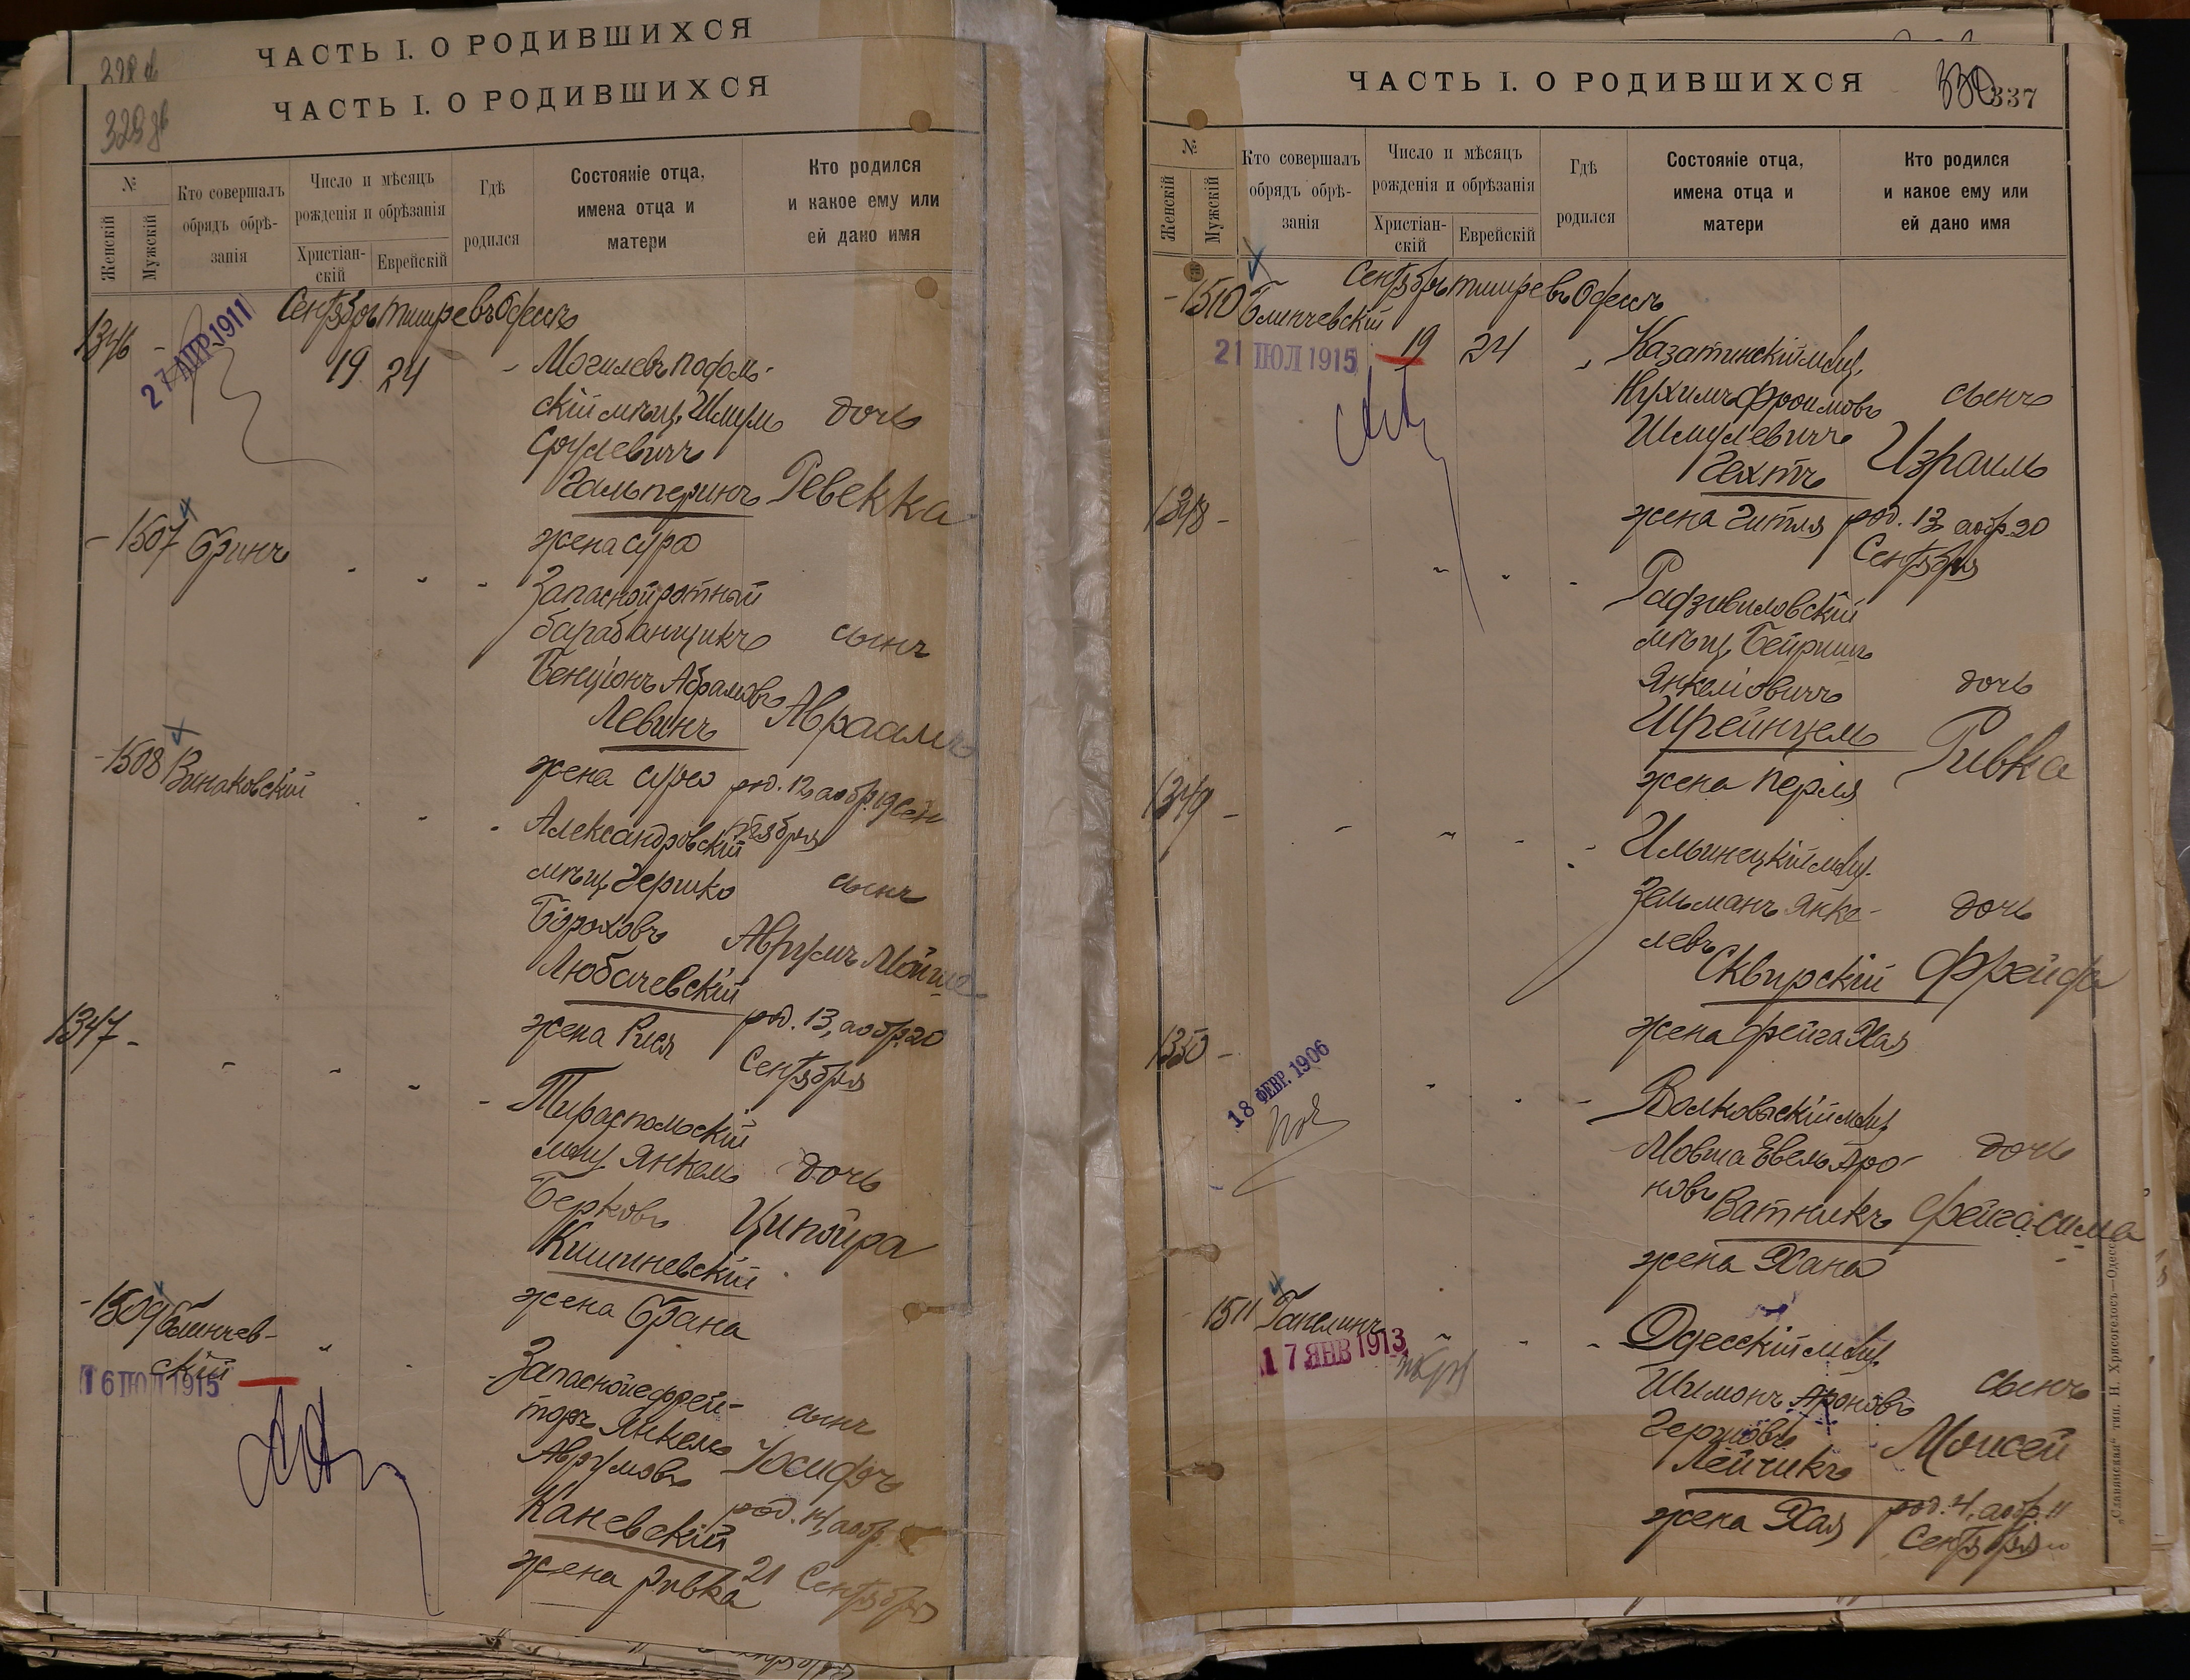 ЧАСТЬ I. О РОДИВШИХСЯ
ЧАСТЬ I. О РОДИВШИХСЯ
№
Женскій
Мужскій
Кто совершалъ обрядъ обрѣ-занія
Число и мѣсяцъ рожденія и обрѣзанія
Христіан-скій
Еврейскій
Гдѣ родился
Состояніе отца, имена отца и матери
Кто родился и какое ему или ей дано имя
Сентябрь тишре въ Одессѣ
1346 -
27 АПР. 1911
19 24
Могилевъ подоль-
скій мѣщ. Шмуль дочь
Срулевичъ
Гальперинъ Ревекка
жена Сура
- 1507 Бринъ
Запасной ротный
барабанщикъ сынъ
Бенціонъ Абрамовъ
Левинъ Авраамъ
жена Сура род. 12, а обр. 19 Сен
тября
- 1508 Винаковскій
Александровскій
мѣщ. Гершко сынъ
Бороховъ Аврумъ Мойше
Любачевскій
жена Рися род. 13, а обр. 20
Сентября
1347 -
Тираспольскій
мѣщ. Янкель дочь
Берковъ Ципойра
Кишиневскій
жена Брана
- 1509 Блинчев-
скій
16 ІЮЛ 1915
Запасной ефрей-
торъ Янкель сынъ
Аврумовъ Іосифъ
Каневскій род. 14, а обр.
жена Ривка 21 Сентября
ЧАСТЬ I. О РОДИВШИХСЯ
337
№
Женскій
Мужскій
Кто совершалъ обрядъ обрѣ-занія
Число и мѣсяцъ рожденія и обрѣзанія
Христіан-скій
Еврейскій
Гдѣ родился
Состояніе отца, имена отца и матери
Кто родился и какое ему или ей дано имя
Сентябрь тишре въ Одессѣ
- 1510 Блинчевскій
21 ІЮЛ 1915
19 24
Казатинскій мѣщ.
Нухимъ Фроимовъ сынъ
Шмулевичъ
Гехтъ Израиль
жена Гитля род. 13, а обр. 20
Сентября
1348 -
Радзивиловскій
мѣщ. Бейришъ
Янкеліовичъ дочь
Шрейнцель Ривка
жена Перля
1349 -
Ильинецкій мѣщ.
Зельманъ Янке- дочь
левъ
Сквирскій Фрейда
жена Фейга Хая
1350 -
18 ФЕВР. 1906
Волковыскій мѣщ.
Мовша Евель Аро- дочь
новъ
Ватникъ Фейга-Сима
жена Хана
1511 Гапелинъ
17 ЯНВ 1913
Одесскій мѣщ.
Шимонъ Ароновъ сынъ
Гершовъ
Лейчикъ Моисей
жена Хая род. 4, а обр. 11
Сентября
„Славянская“ тип. Н. Хрисогелосъ—Одесса